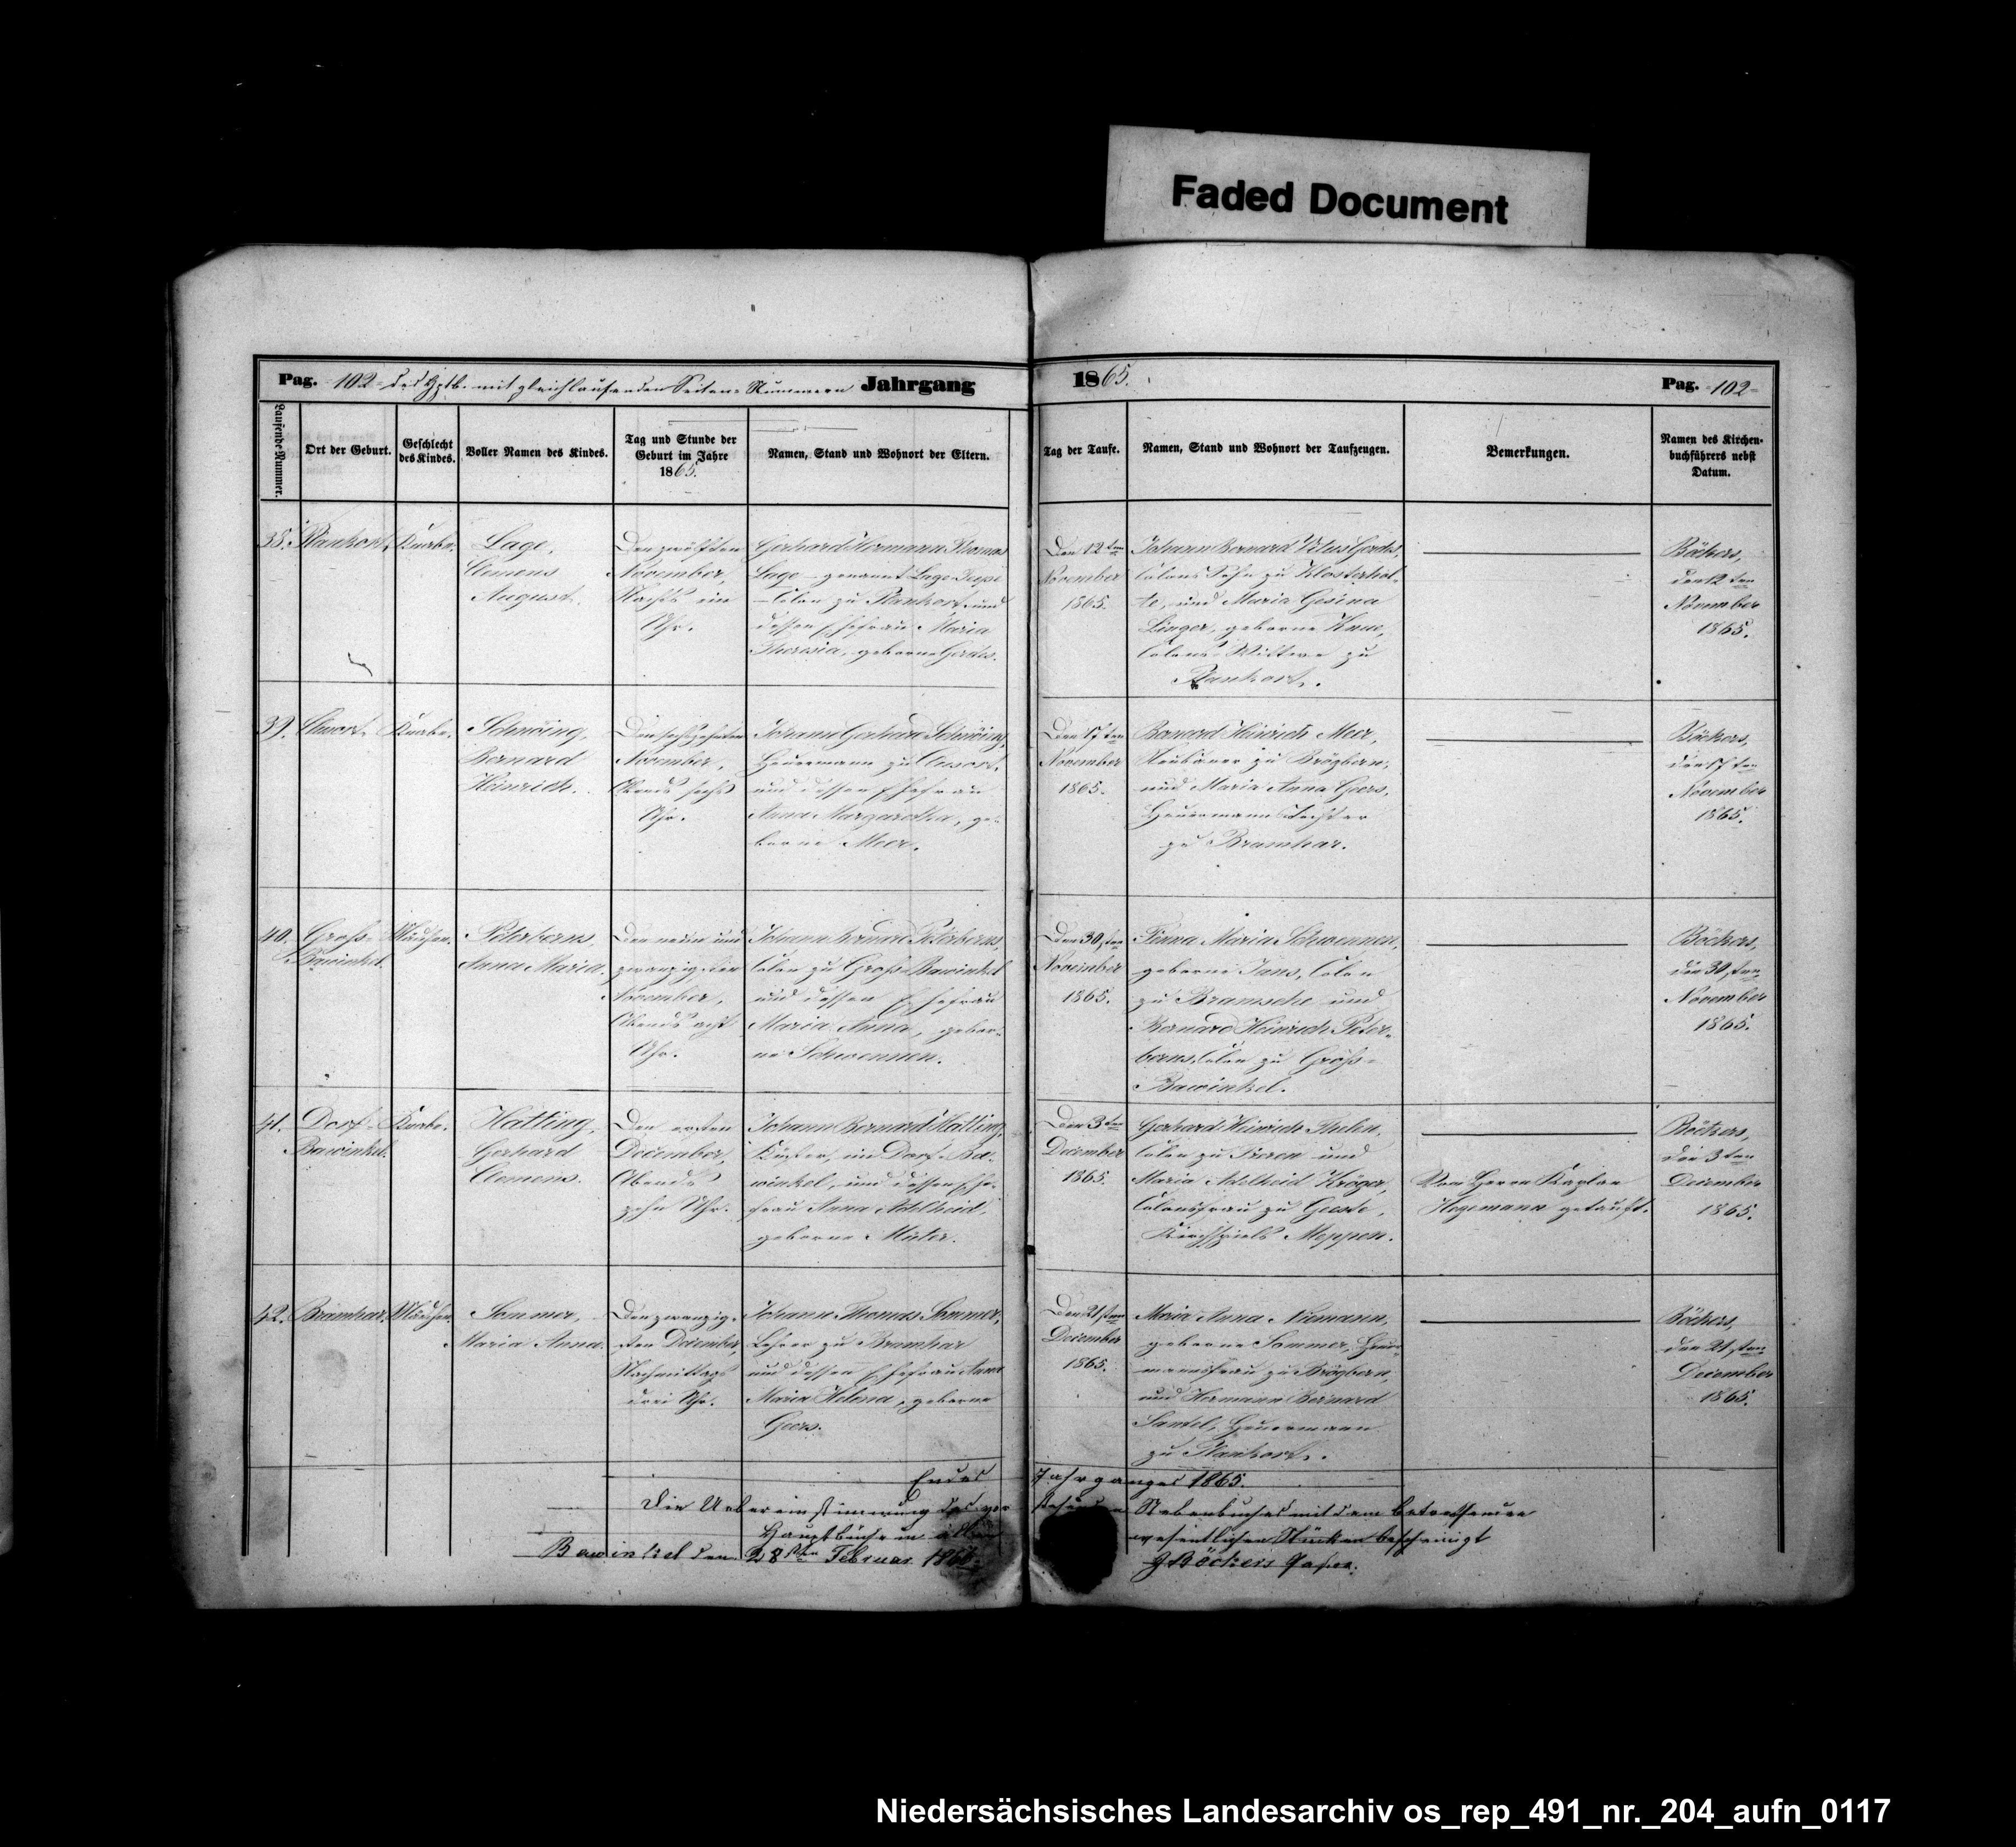 Faded Document
Pag. 102 = des Hptb. mit gleichlaufenden Seiten-Nummern Jahrgang 1865. Pag. 102=
Laufende Nummer.
Ort der Geburt.
Geschlecht
des Kindes.
Voller Namen des Kindes.
Tag und Stunde der
Geburt im Jahre
1865.
Namen, Stand und Wohnort der Eltern.
Tag der Taufe.
Namen, Stand und Wohnort der Taufzeugen.
Bemerkungen.
Namen des Kirchen-
buchführers nebst
Datum.
38.
Plankort.
Knabe.
Lage,
Clemens
August.
Den zwölften
November,
Nachts ein
Uhr.
Gerhard Hermann Thomas
Lage - genannt Lage-Teipe
- Colon zu Plankort, und
dessen Ehefrau Maria
Theresia, geborne Gerdes.
Den 12ten
November
1865.
Johann Bernard Vitus Gerdes,
Colons Sohn zu Klosterhol-
te, und Maria Gesina
Linger, geborne Knue,
Colons-Wittwe zu
Plankort.
Böckers,
den 12ten
November
1865.
39.
Clusort.
Knabe.
Schwöing,
Bernard
Heinrich.
Den sechszehnten
November,
Abends sechs
Uhr.
Johann Gerhard Schwöing,
Heuermann zu Clusort,
und dessen Ehefrau
Anna Margaretha, ge-
borne Meer.
Den 17ten
November
1865.
Bernard Heinrich Meer,
Neubauer zu Brögbern,
und Maria Anna Geers,
Heuermanns Tochter
zu Bramhar.
Böckers,
den 17ten
November
1865.
40.
Groß-
Bawinkel.
Mädchen.
Peterberns,
Anna Maria.
Den neun und
zwanzigsten
November,
Abends acht
Uhr.
Johann Bernard Peterberns,
Colon zu Groß-Bawinkel
und dessen Ehefrau
Maria Anna, gebor-
ne Schwennen.
Den 30sten
November
1865.
Fenna Maria Schwennen,
geborne Jans, Colon
zu Bramsche und
Bernard Heinrich Peter-
berns, Colon zu Groß-
Bawinkel.
Böckers,
den 30sten
November
1865.
41.
Dorf-
Bawinkel.
Knabe.
Hatting,
Gerhard
Clemens.
Den ersten
December,
Abends
zehn Uhr.
Johann Bernard Hatting,
Küster, im Dorf-Ba-
winkel, und dessen Ehe-
frau Anna Adelheid,
geborne Müter.
Den 3ten
December
1865.
Gerhard Heinrich Thelen,
Colon zu Beren und
Maria Adelheid Kröger,
Colonsfrau zu Geeste,
Kirchspiels Meppen.
Vom Herrn Kaplan
Hegemann getauft.
Böckers,
den 3ten
December
1865.
42.
Bramhar.
Mädchen.
Sommer,
Maria Anna.
Den zwanzig-
sten December,
Nachmittags
drei Uhr.
Johann Thomas Sommer,
Lehrer zu Bramhar
und dessen Ehefrau Anna
Maria Helena, geborne
Geers.
Den 21sten
December
1865.
Maria Anna Niemann,
geborne Sommer, Heuer-
mannsfrau zu Brögbern,
und Hermann Bernard
Santel, Heuermann
zu Plankort.
Böckers,
den 21sten
December
1865.
Ende des Jahrganges 1865.
Die Uebereinstimmung des vorstehenden Nebenbuches mit dem betreffenden
Hauptbuche in allen wesentlichen Stücken bescheinigt
Bawinkel den 28ten Februar 1866. J Böckers Pastor.
Niedersächsisches Landesarchiv os_rep_491_nr._204_aufn_0117